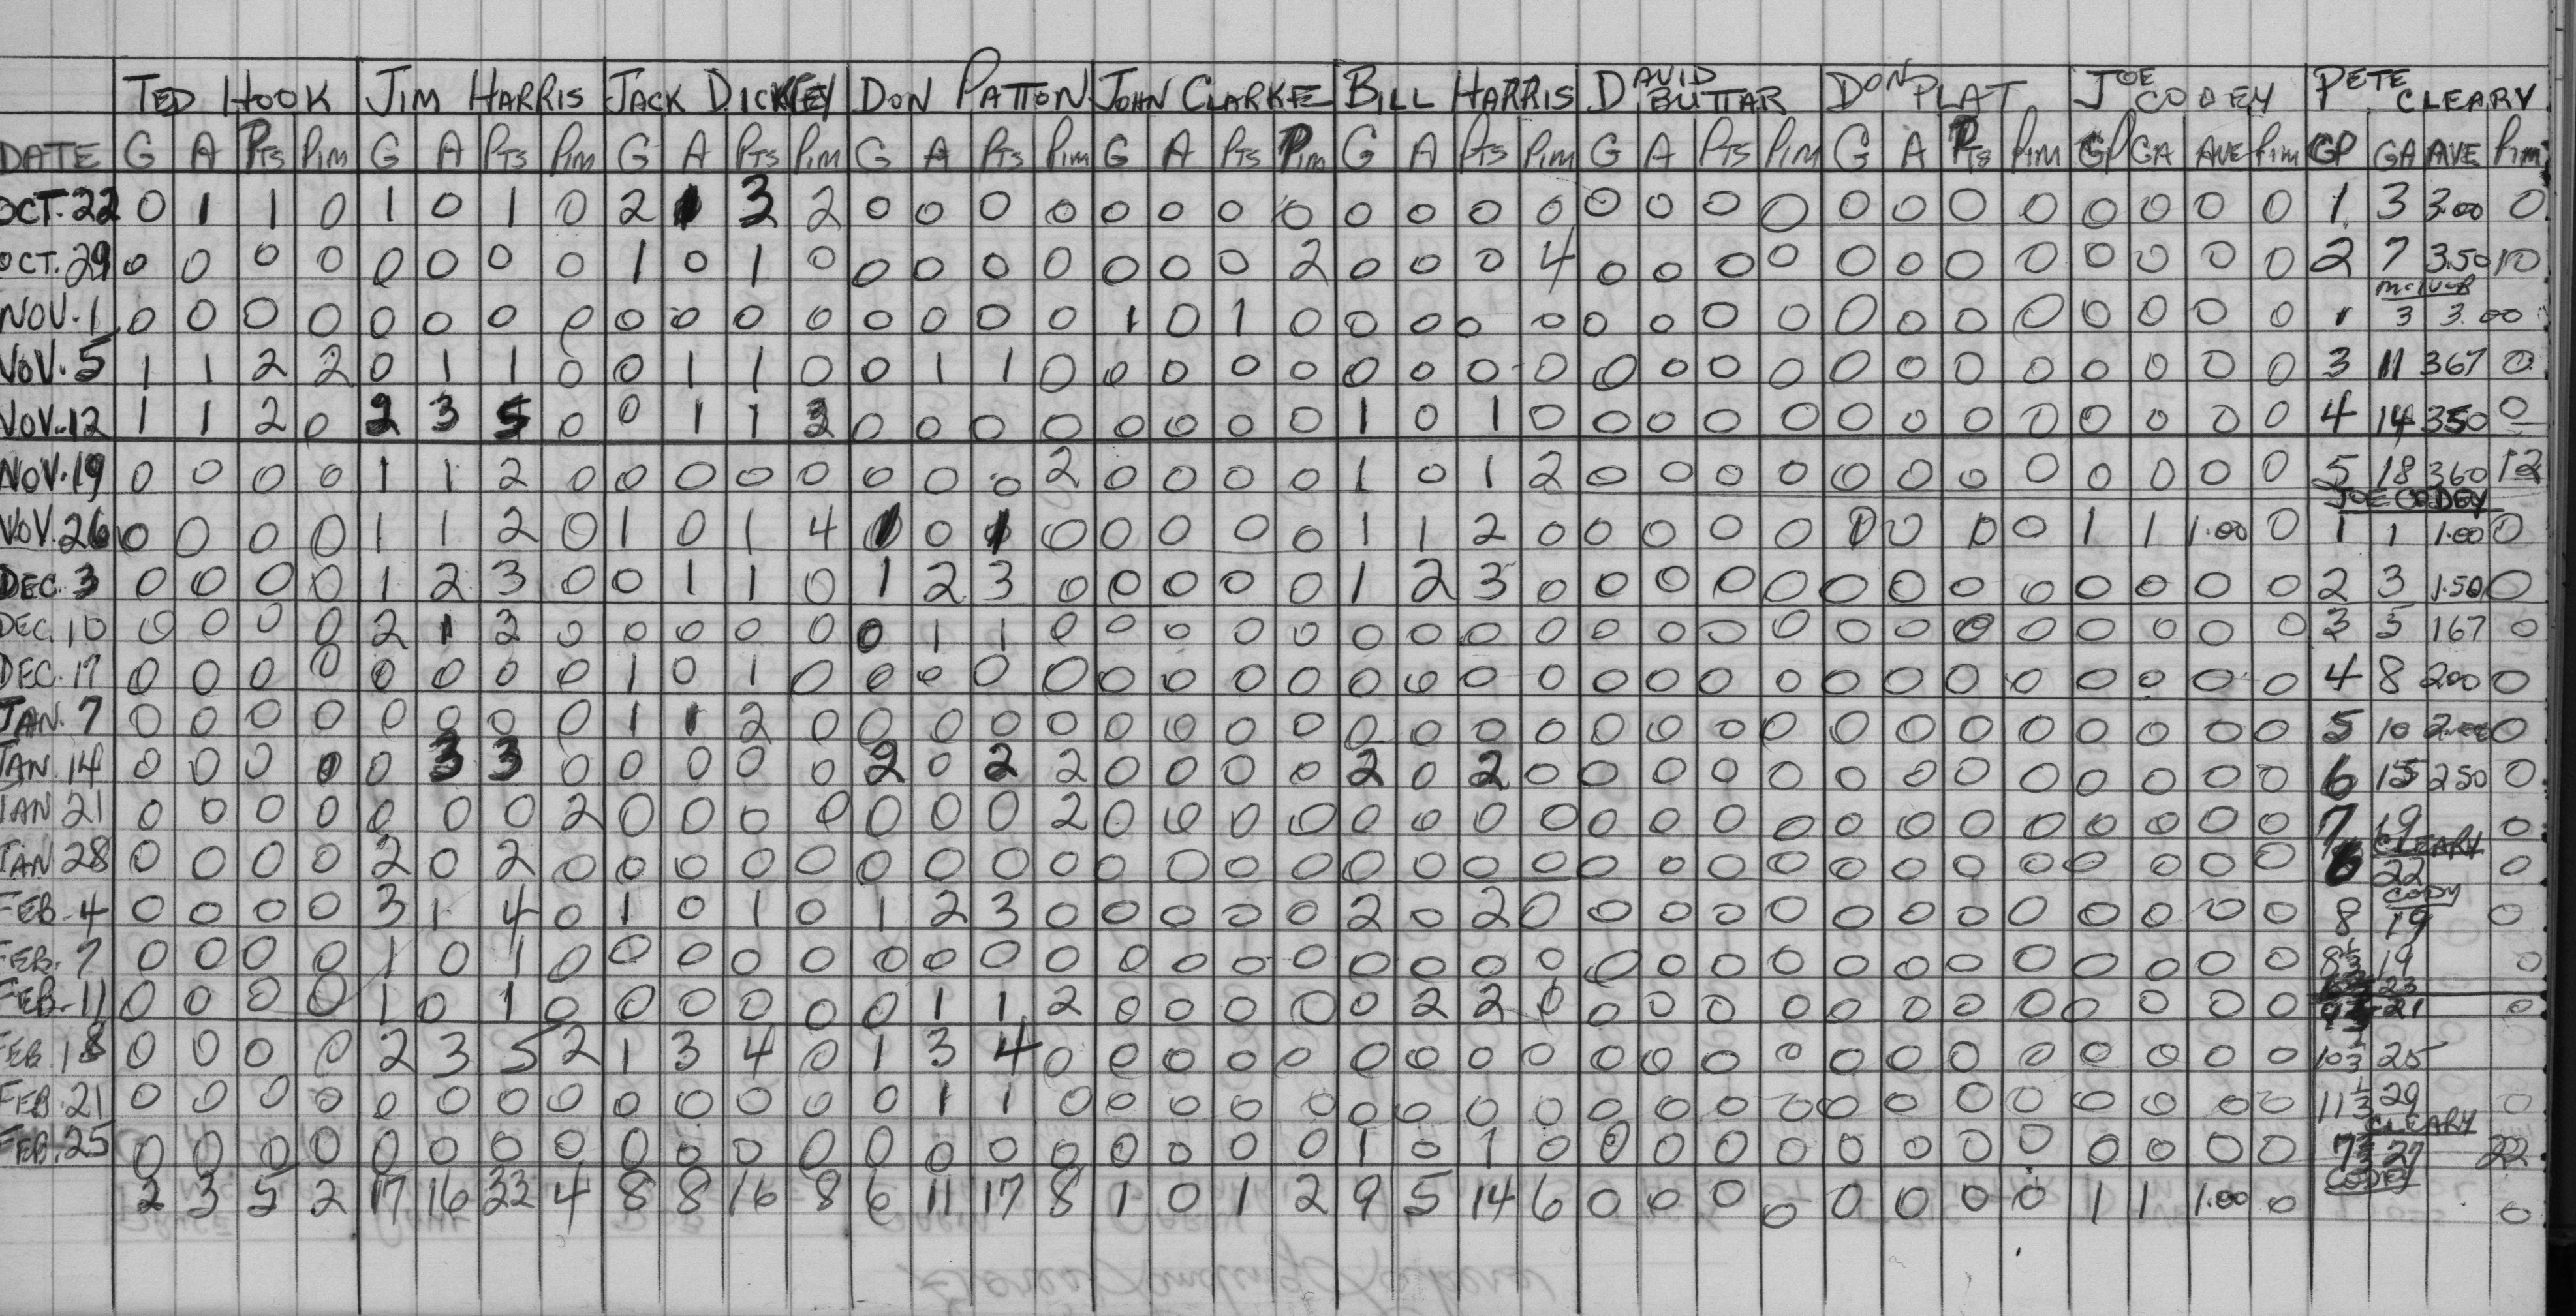 TED HOOK JIM HARRIS JACK DICKEY DON PATTON JOHN CLARKE BILL HARRIS DAVID BUTTAR DON PLAT JOE CODEY PETE CLEARY
DATE G A PTS PIM G A PTS PIM G A PTS PIM G A PTS PIM G A PTS PIM G A PTS PIM G A PTS PIM G A PTS PIM GP GA AVE PIM GP GA AVE PIM
OCT. 22 0 1 1 0 1 0 1 0 2 1 3 2 0 0 0 0 0 0 0 0 0 0 0 0 0 0 0 0 0 0 0 0 0 0 0 0 1 3 3.00 0
OCT. 29 0 0 0 0 0 0 0 0 1 0 1 0 0 0 0 0 0 0 0 2 0 0 0 4 0 0 0 0 0 0 0 0 0 0 0 0 2 7 3.50 10
NOV. 1 0 0 0 0 0 0 0 0 0 0 0 0 0 0 0 0 1 0 1 0 0 0 0 0 0 0 0 0 0 0 0 0 0 0 0 0 1 3 3.00
NOV. 5 1 1 2 2 0 1 1 0 0 1 1 0 0 1 1 0 0 0 0 0 0 0 0 0 0 0 0 0 0 0 0 0 0 0 0 0 3 11 367 0
NOV. 12 1 1 2 0 2 3 5 0 0 1 1 2 0 0 0 0 0 0 0 0 1 0 1 0 0 0 0 0 0 0 0 0 0 0 0 0 4 14 350 0
NOV. 19 0 0 0 0 1 1 2 0 0 0 0 0 0 0 0 2 0 0 0 0 1 0 1 2 0 0 0 0 0 0 0 0 0 0 0 0 5 18 360 12
JOE CODEY
NOV. 26 0 0 0 0 1 1 2 0 1 0 1 4 1 0 1 0 0 0 0 0 1 1 2 0 0 0 0 0 0 0 0 0 1 1 1.00 0 1 1 1.00 0
DEC. 3 0 0 0 0 1 2 3 0 0 1 1 0 1 2 3 0 0 0 0 0 1 2 3 0 0 0 0 0 0 0 0 0 0 0 0 0 2 3 1.50 0
DEC. 10 0 0 0 0 2 1 3 0 0 0 0 0 0 1 1 0 0 0 0 0 0 0 0 0 0 0 0 0 0 0 0 0 0 0 0 0 3 5 167 0
DEC. 17 0 0 0 0 0 0 0 0 1 0 1 0 0 0 0 0 0 0 0 0 0 0 0 0 0 0 0 0 0 0 0 0 0 0 0 0 4 8 200 0
JAN. 7 0 0 0 0 0 0 0 0 1 1 2 0 0 0 0 0 0 0 0 0 0 0 0 0 0 0 0 0 0 0 0 0 0 0 0 0 5 10 2.00 0
JAN. 14 0 0 0 0 0 3 3 0 0 0 0 0 2 0 2 2 0 0 0 0 2 0 2 0 0 0 0 0 0 0 0 0 0 0 0 0 6 15 250 0
JAN 21 0 0 0 0 0 0 0 2 0 0 0 0 0 0 0 2 0 0 0 0 0 0 0 0 0 0 0 0 0 0 0 0 0 0 0 0 7 19 0
CLEARY
JAN 28 0 0 0 0 2 0 2 0 0 0 0 0 0 0 0 0 0 0 0 0 0 0 0 0 0 0 0 0 0 0 0 0 0 0 0 0 6 22 0
CODY
FEB. 4 0 0 0 0 3 1 4 0 1 0 1 0 1 2 3 0 0 0 0 0 2 0 2 0 0 0 0 0 0 0 0 0 0 0 0 0 8 19 0
FEB. 7 0 0 0 0 1 0 1 0 0 0 0 0 0 0 0 0 0 0 0 0 0 0 0 0 0 0 0 0 0 0 0 0 0 0 0 0 8⅓ 19 0
23
FEB. 11 0 0 0 0 1 0 1 0 0 0 0 0 0 1 1 2 0 0 0 0 0 2 2 0 0 0 0 0 0 0 0 0 0 0 0 0 21 0
FEB. 18 0 0 0 0 2 3 5 2 1 3 4 0 1 3 4 0 0 0 0 0 0 0 0 0 0 0 0 0 0 0 0 0 0 0 0 0 10⅓ 25
FEB. 21 0 0 0 0 0 0 0 0 0 0 0 0 0 1 1 0 0 0 0 0 0 0 0 0 0 0 0 0 0 0 0 0 0 0 0 0 11⅓ 29 0
CLEARY
FEB. 25 0 0 0 0 0 0 0 0 0 0 0 0 0 0 0 0 0 0 0 0 1 0 1 0 0 0 0 0 0 0 0 0 0 0 0 0 27 22
CODEY
2 3 5 2 17 16 33 4 8 8 16 8 6 11 17 8 1 0 1 2 9 5 14 6 0 0 0 0 0 0 0 0 1 1 1.00 0 0